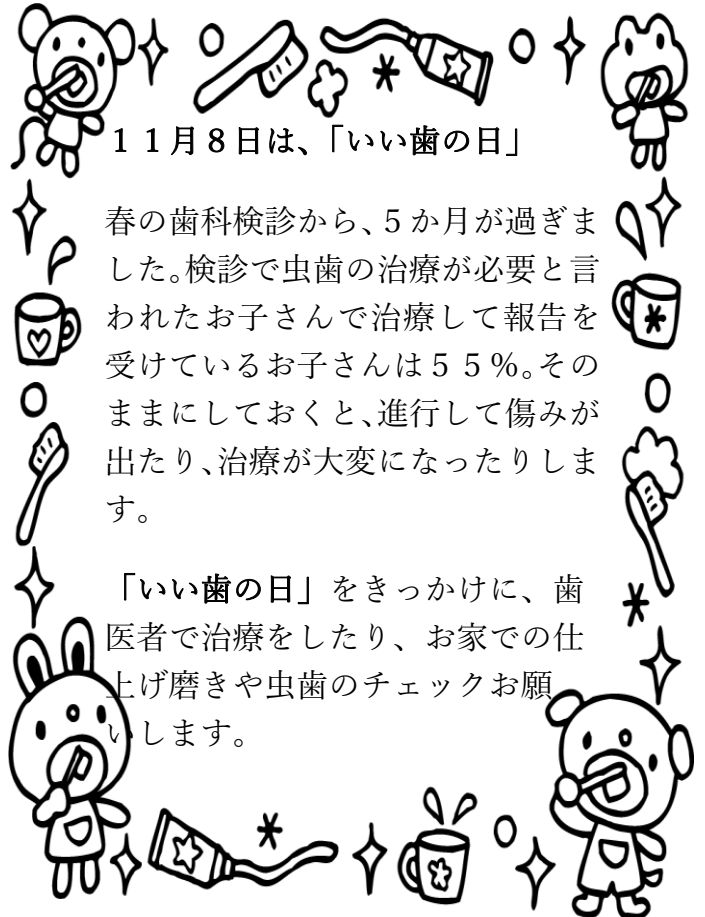 １１月８日は、「いい歯の日」
春の歯科検診から、５か月が過ぎま
した。検診で虫歯の治療が必要と言
われたお子さんで治療して報告を
受けているお子さんは５５％。その
ままにしておくと、進行して傷みが
出たり、治療が大変になったりしま
す。
「いい歯の日」をきっかけに、歯
医者で治療をしたり、お家での仕
上げ磨きや虫歯のチェックお願
いします。